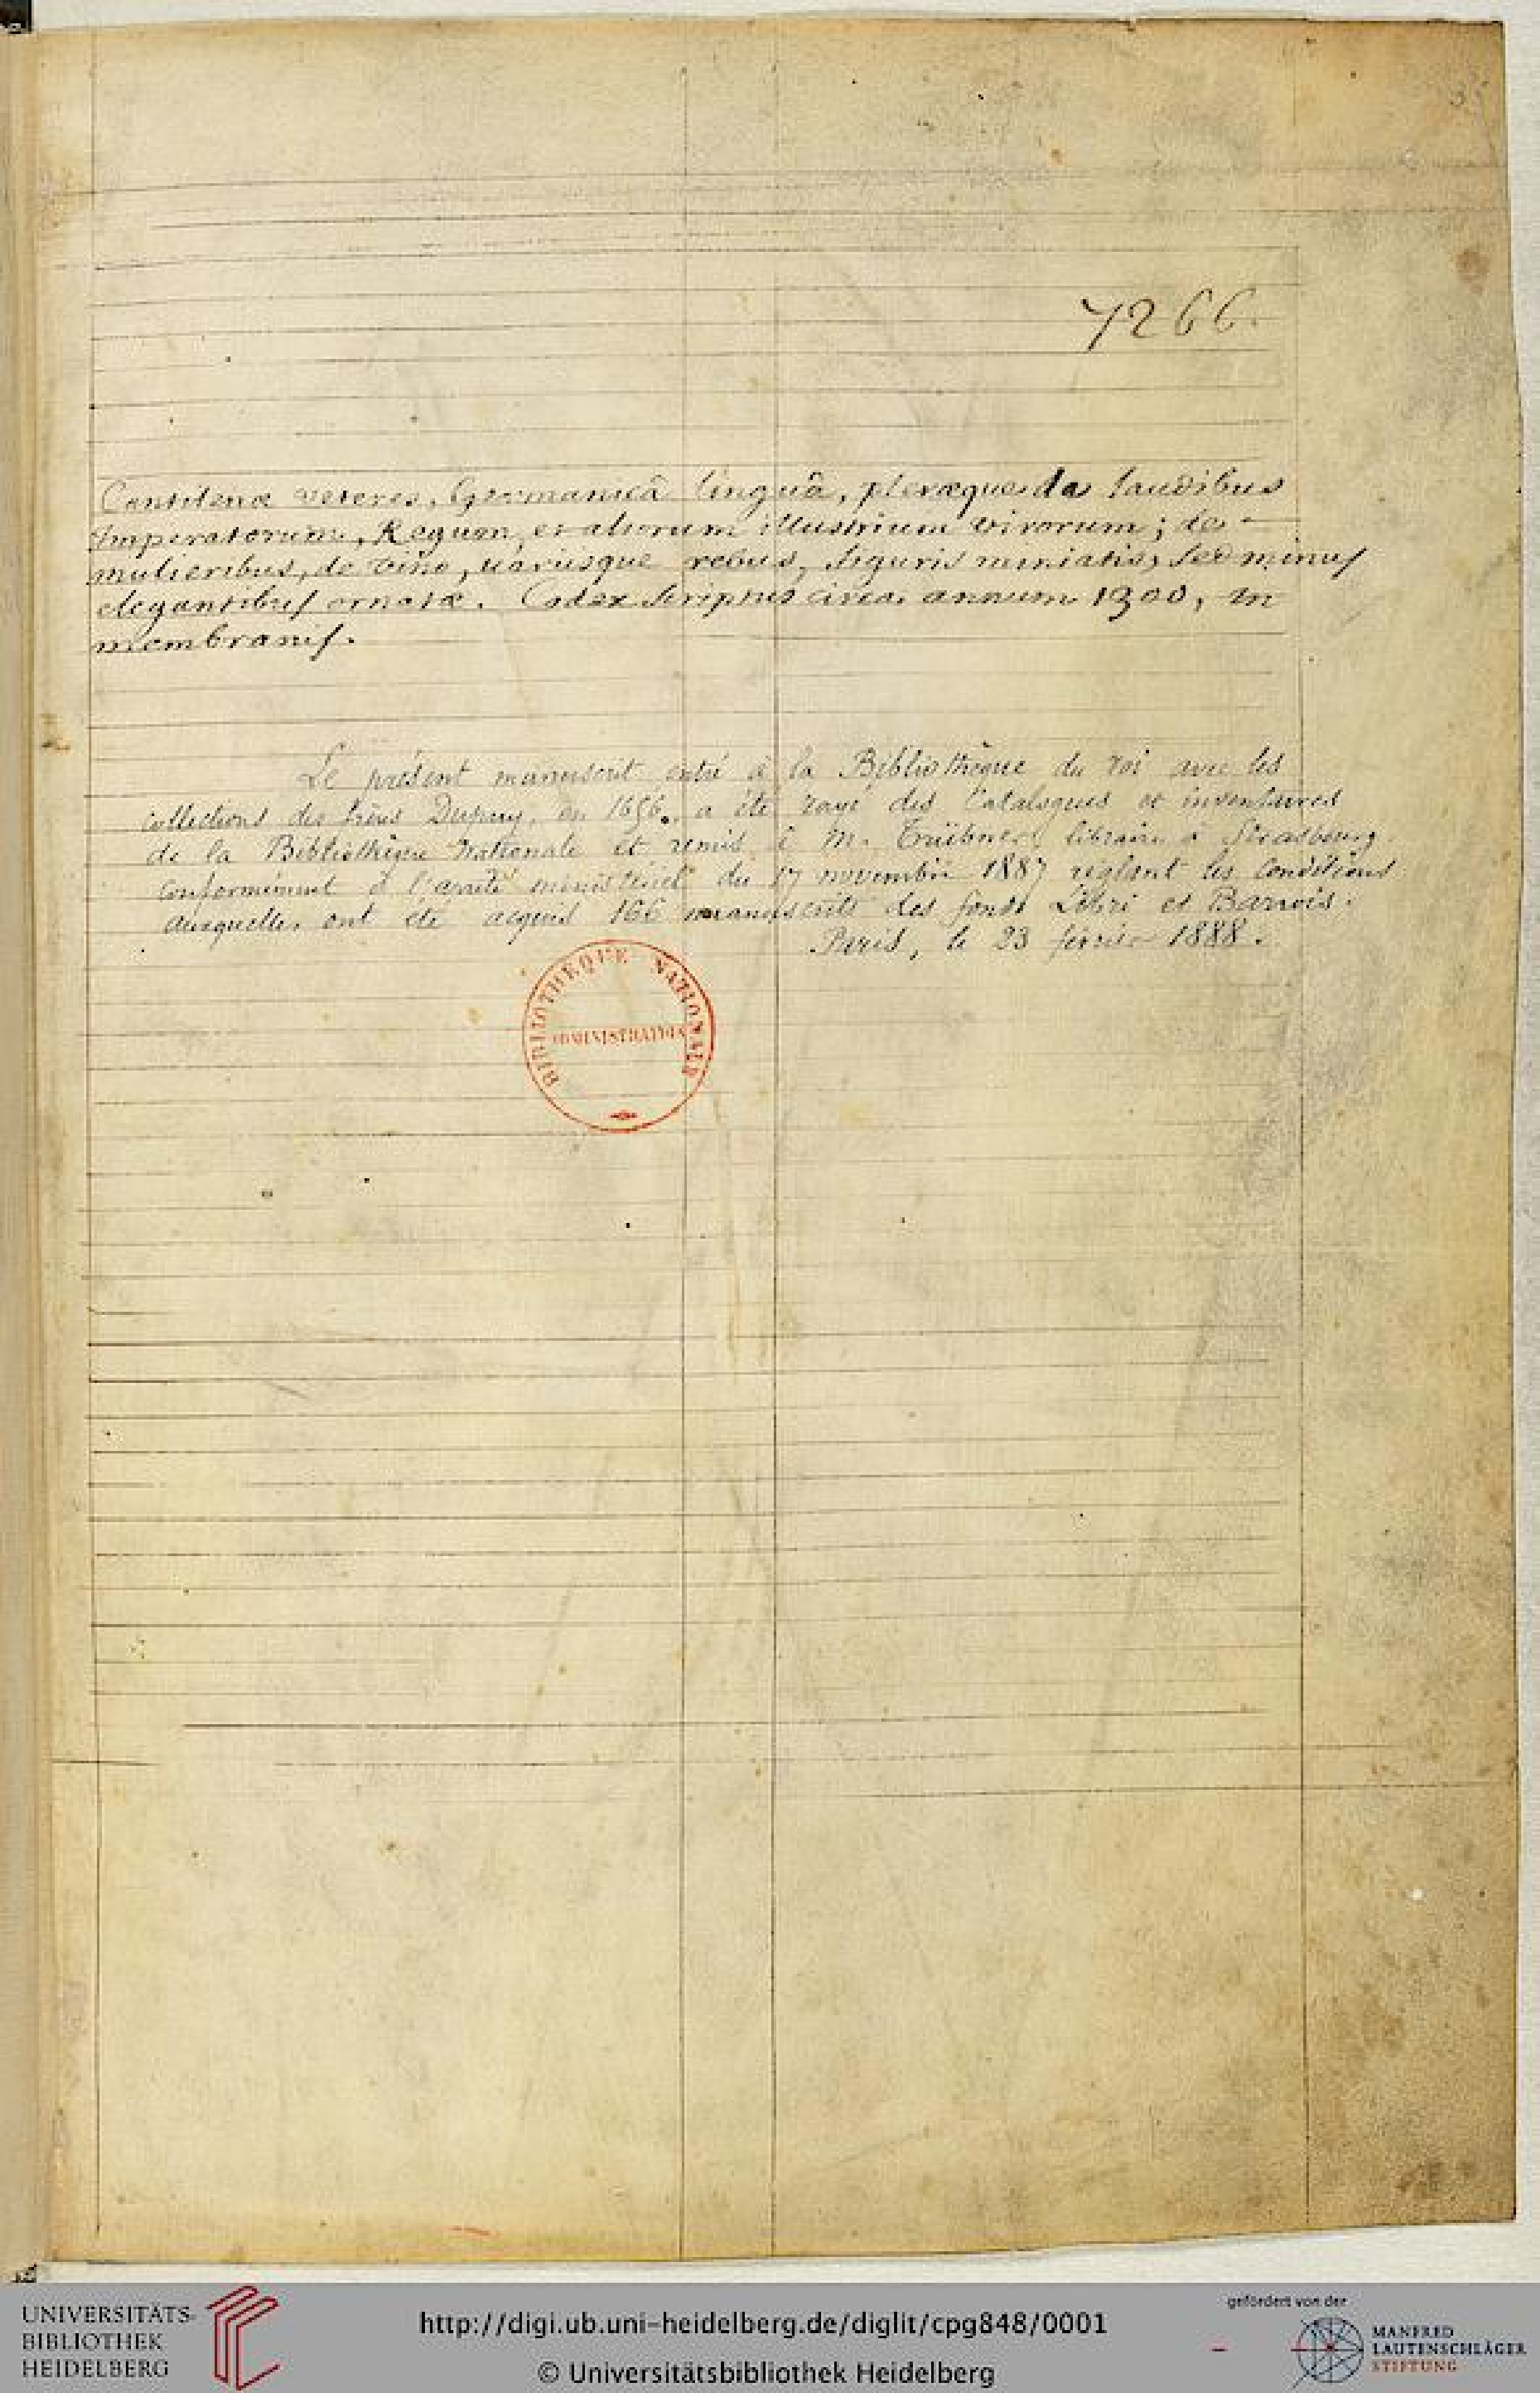 7266.
Cantilenæ veteres, Germanicâ linguâ, pleræque de laudibus
Imperatorum, Regum, et aliorum illustrium virorum; de
mulieribus, de vino, variisque rebus, figuris miniatis, sed minus
elegantibus ornatæ. Codex scriptus circa annum 1300, in
membranis.
Le présent manuscrit entré à la Bibliothèque du roi avec les
collections des frères Dupuy, en 1656, a été rayé des Catalogues et inventaires
de la Bibliothèque Nationale et remis à M. Trübner, libraire à Strasbourg.
conformément à l'arrêté ministériel du 17 novembre 1887 réglant les conditions
auxquelles ont été acquis 166 manuscrits des fonds Libri et Barrois.
Paris, le 23 février 1888.
BIBLIOTHEQUE NATIONALE
ADMINISTRATION
UNIVERSITÄTS-
BIBLIOTHEK
HEIDELBERG
http://digi.ub.uni-heidelberg.de/diglit/cpg848/0001
© Universitätsbibliothek Heidelberg
gefördert von der
MANFRED
LAUTENSCHLÄGER
STIFTUNG